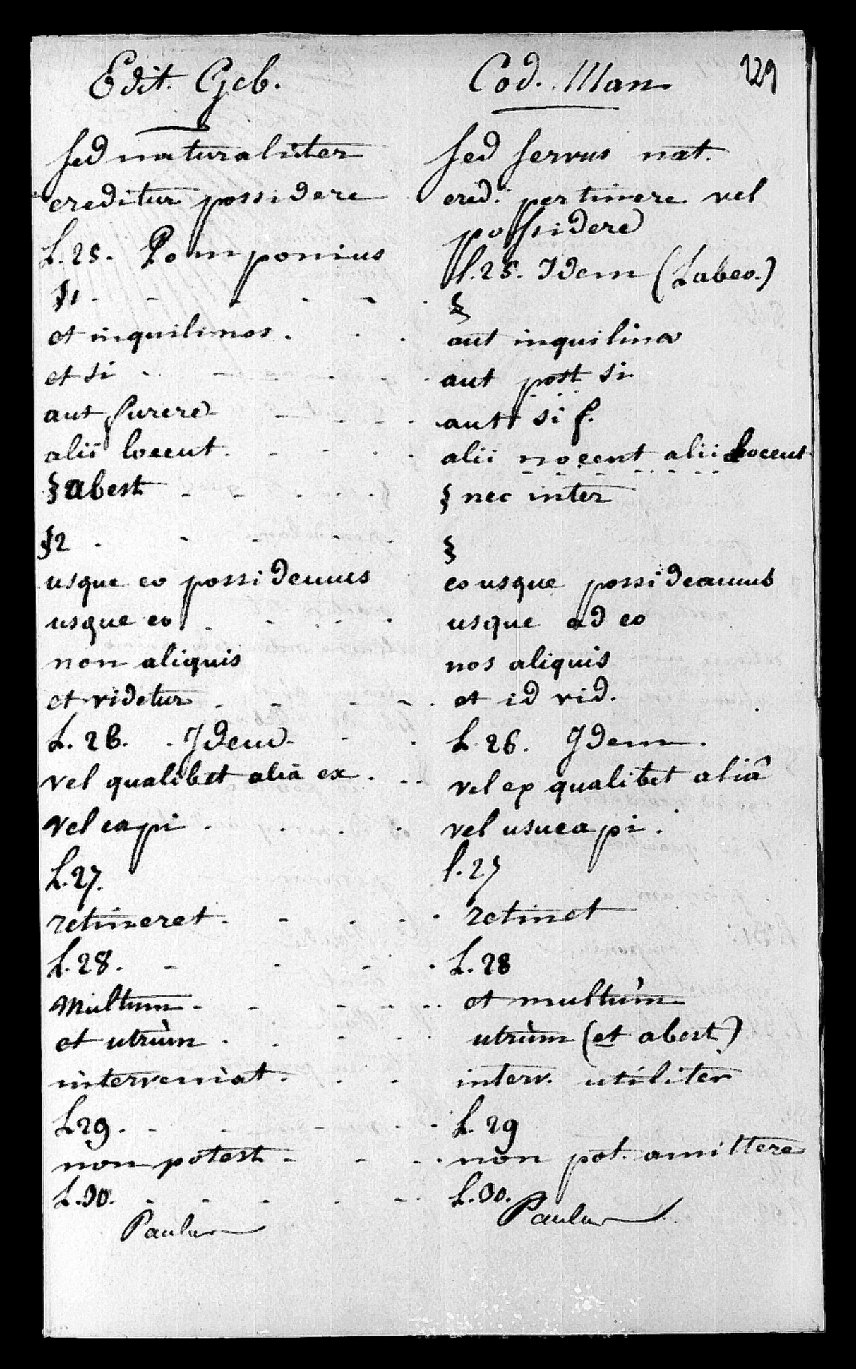 Edit. Geb. Cod. Man 229
sed naturaliter sed servus nat.
creditur possidere cred. pertinere vel
possidere
L. 25. Pomponius l. 25. Idem (Labeo.)
§1 §
et inquilinos aut inquilinos
et si aut post si
aut furere aut si f.
alii locent alii nocent alii docent
§ abest § nec inter
§2 §
usque eo possidemus eo usque possideamus
usque eo usque ad eo
non aliquis nos aliquis
et videtur et id vid.
L. 26. Idem L. 26. Idem.
vel qualibet aliâ ex vel ex qualibet aliâ
vel capi vel usucapi.
L. 27. l. 27
retineret retinet
L. 28. L. 28
Multum et multùm
et utrùm utrùm (et abest)
interveniat interv. utiliter
L29. L. 29
non potest non pot. amittere
L. 30. L. 30.
Paulus Paulus